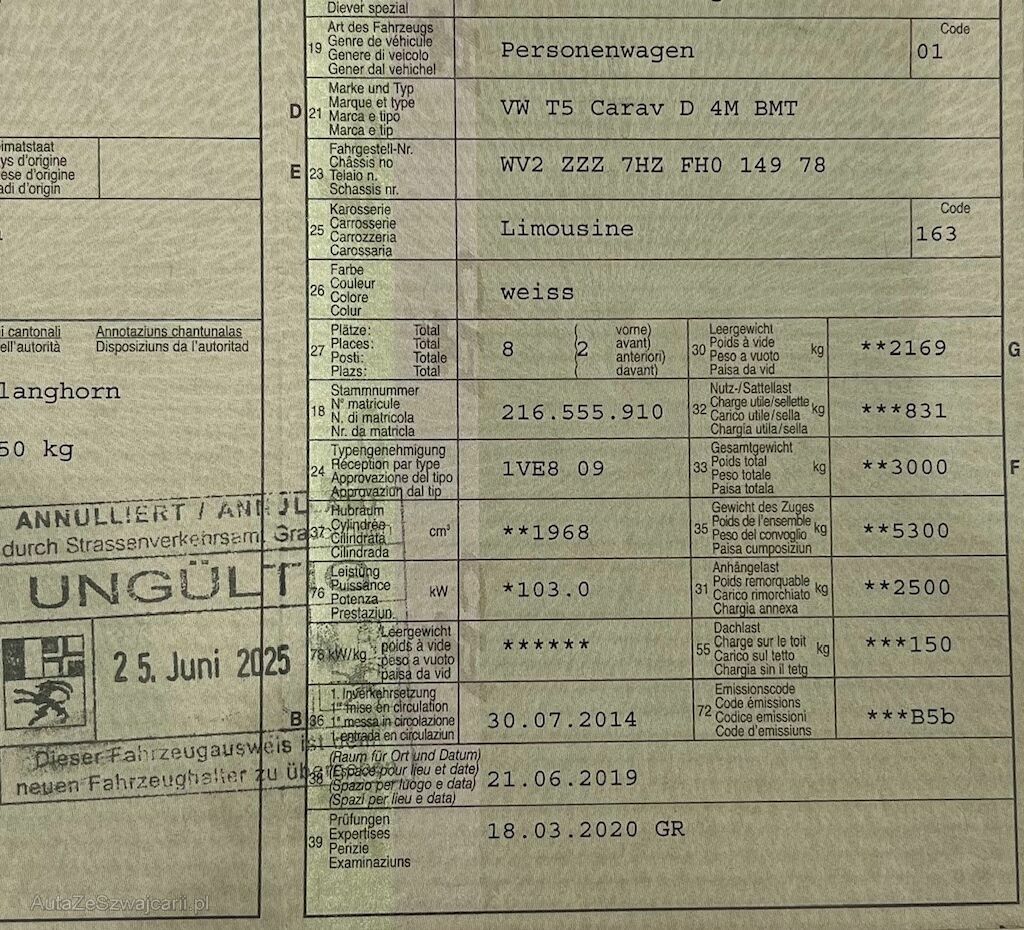 Diever spezial
19 Art des Fahrzeugs
Genre de véhicule
Genere di veicolo
Gener dal vehichel
Personenwagen
Code
01
D 21 Marke und Typ
Marque et type
Marca e tipo
Marca e tip
VW T5 Carav D 4M BMT
imatstaat
ys d'origine
ese d'origine
adi d'origin
E 23 Fahrgestell-Nr.
Châssis no
Telaio n.
Schassis nr.
WV2 ZZZ 7HZ FH0 149 78
25 Karosserie
Carrosserie
Carrozzeria
Carossaria
Limousine
Code
163
26 Farbe
Couleur
Colore
Colur
weiss
i cantonali Annotaziuns chantunalas
ell'autorità Disposiziuns da l'autoritad
langhorn
50 kg
27 Plätze: Total
Places: Total
Posti: Totale
Plazs: Total
8 (2 vorne)
( avant)
( anteriori)
( davant)
30 Leergewicht
Poids à vide
Peso a vuoto
Paisa da vid
kg
**2169
G
18 Stammnummer
N° matricule
N. di matricola
Nr. da matricla
216.555.910
32 Nutz-/Sattellast
Charge utile/sellette
Carico utile/sella
Chargia utila/sella
kg
***831
24 Typengenehmigung
Réception par type
Approvazione del tipo
Approvaziun dal tip
1VE8 09
33 Gesamtgewicht
Poids total
Peso totale
Paisa totala
kg
**3000
F
37 Hubraum
Cylindrée
Cilindrata
Cilindrada
cm³
**1968
35 Gewicht des Zuges
Poids de l'ensemble
Peso del convoglio
Paisa cumposiziun
kg
**5300
76 Leistung
Puissance
Potenza
Prestaziun
kW
*103.0
31 Anhängelast
Poids remorquable
Carico rimorchiato
Chargia annexa
kg
**2500
78 kW/kg Leergewicht
poids à vide
peso a vuoto
paisa da vid
******
55 Dachlast
Charge sur le toit
Carico sul tetto
Chargia sin il tetg
kg
***150
B 36 1. Inverkehrsetzung
1re mise en circulation
1a messa in circolazione
1. entrada en circulaziun
30.07.2014
72 Emissionscode
Code émissions
Codice emissioni
Code d'emissiuns
***B5b
38 (Raum für Ort und Datum)
(Espace pour lieu et date)
(Spazio per luogo e data)
(Spazi per lieu e data)
21.06.2019
39 Prüfungen
Expertises
Perizie
Examinaziuns
18.03.2020 GR
ANNULLIERT / ANNUL
durch Strassenverkehrsamt Gra
UNGÜLTI
25. Juni 2025
Dieser Fahrzeugausweis ist dem
neuen Fahrzeughalter zu
AutaZeSzwajcarii.pl